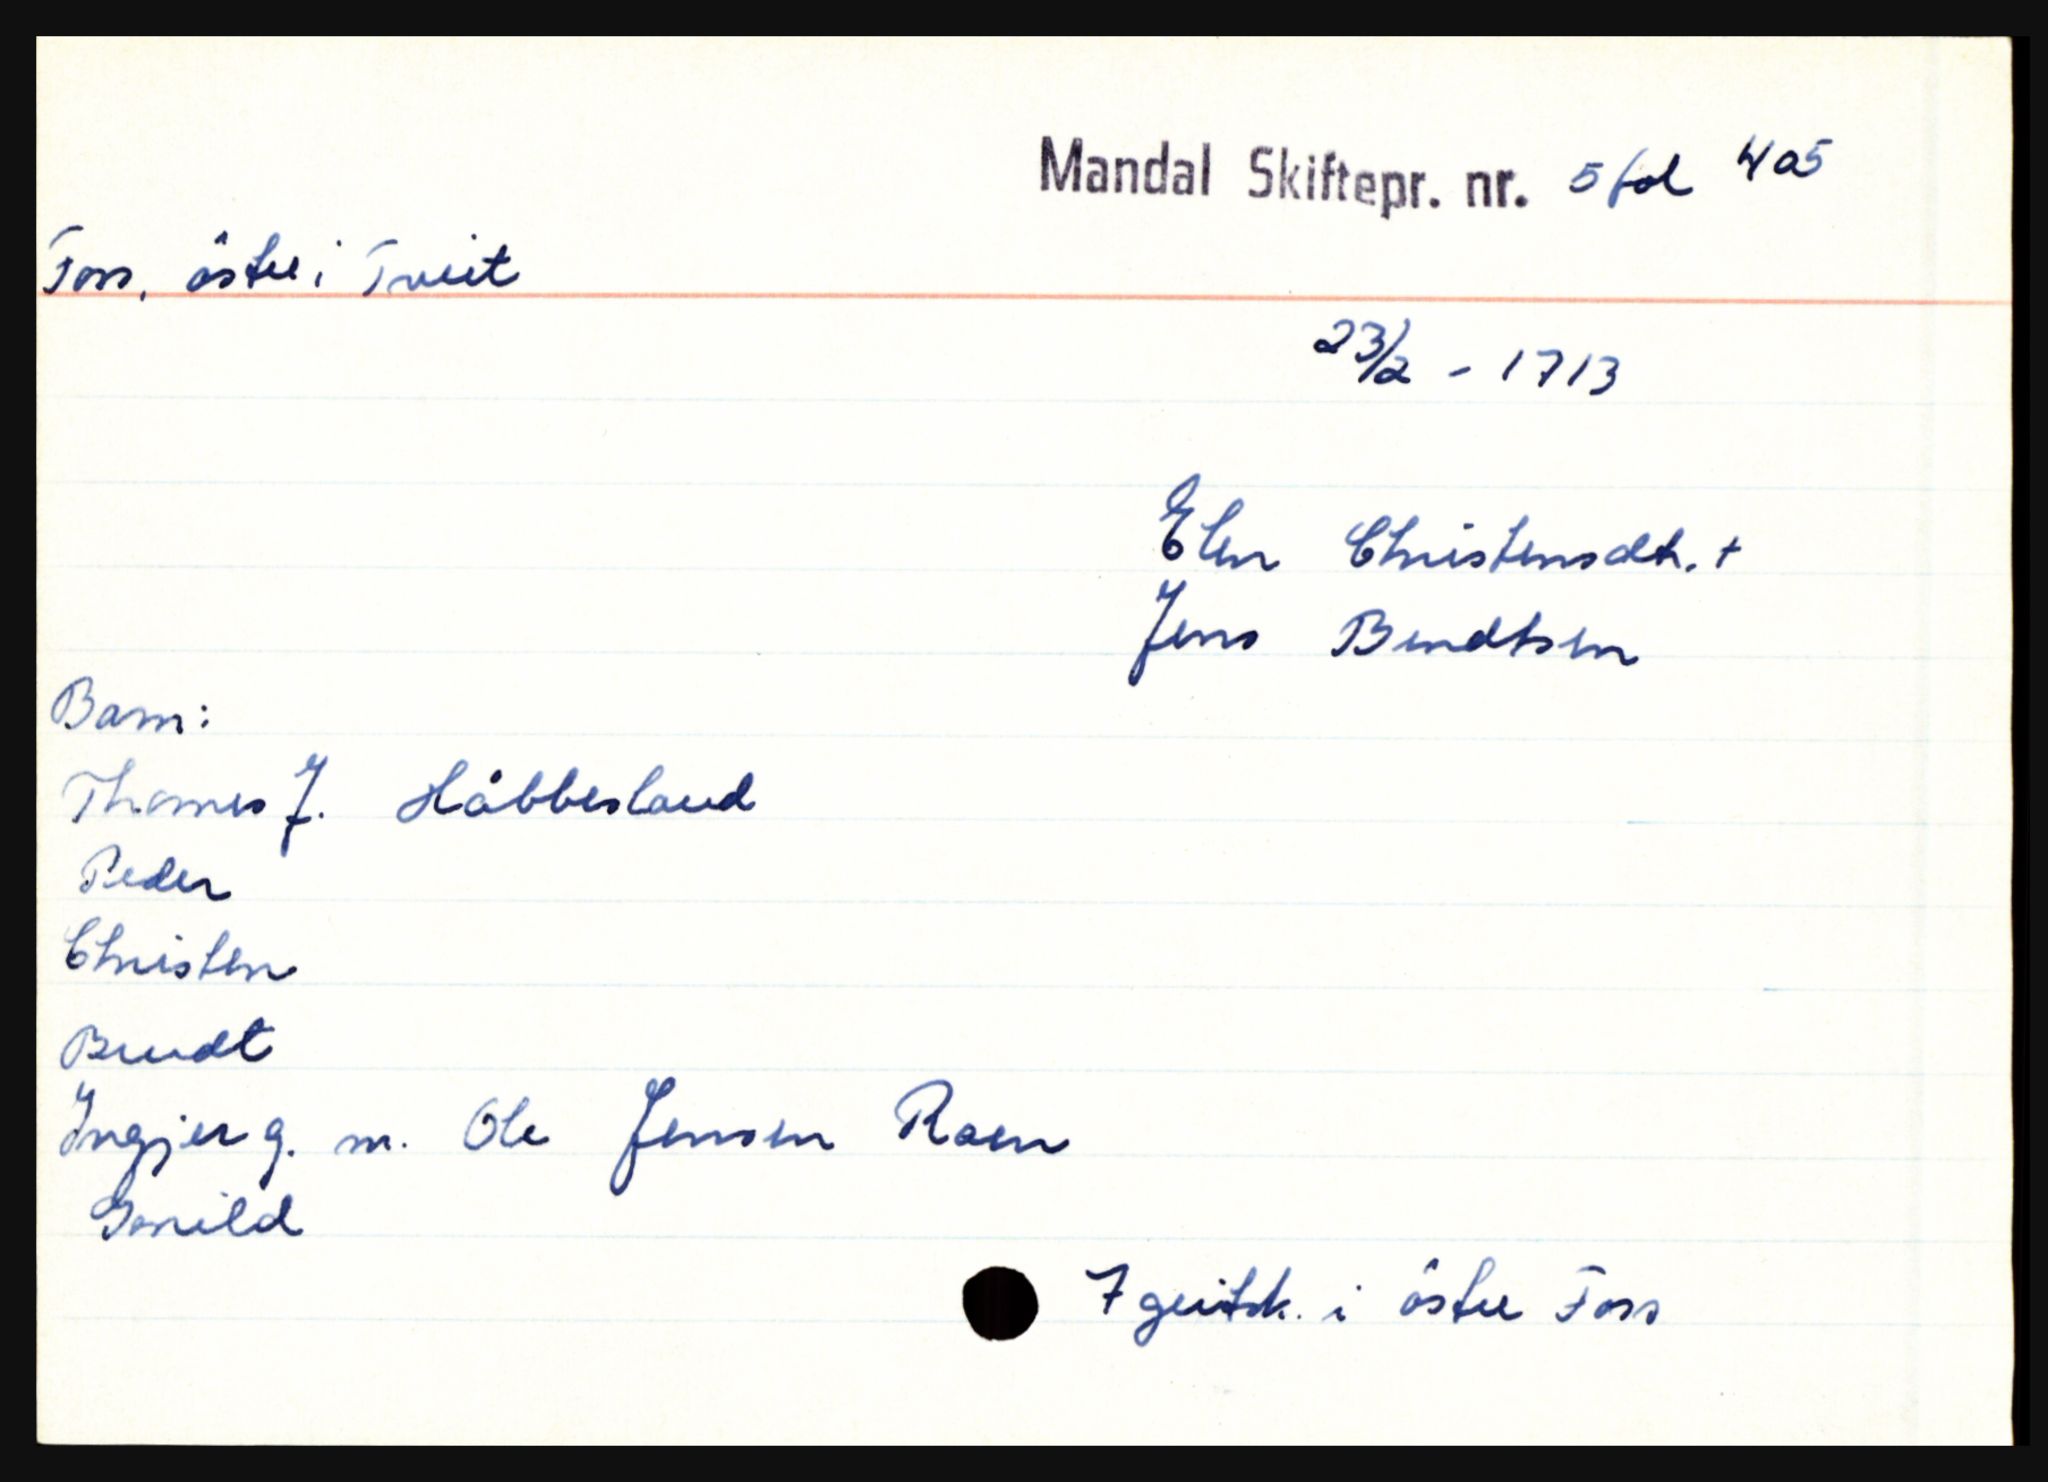 Mandal Skiftepr. nr. 5 fol 405
Foss, østre i Tveit
23/2 - 1713
Elen Christensdtr. +
Jens Bendtsen
Barn:
Thomes J. Håbbesland
Peder
Christen
Bendt
Ingjer g. m. Ole Jensen Raen
Gonild
7 geitsk. i østre Foss